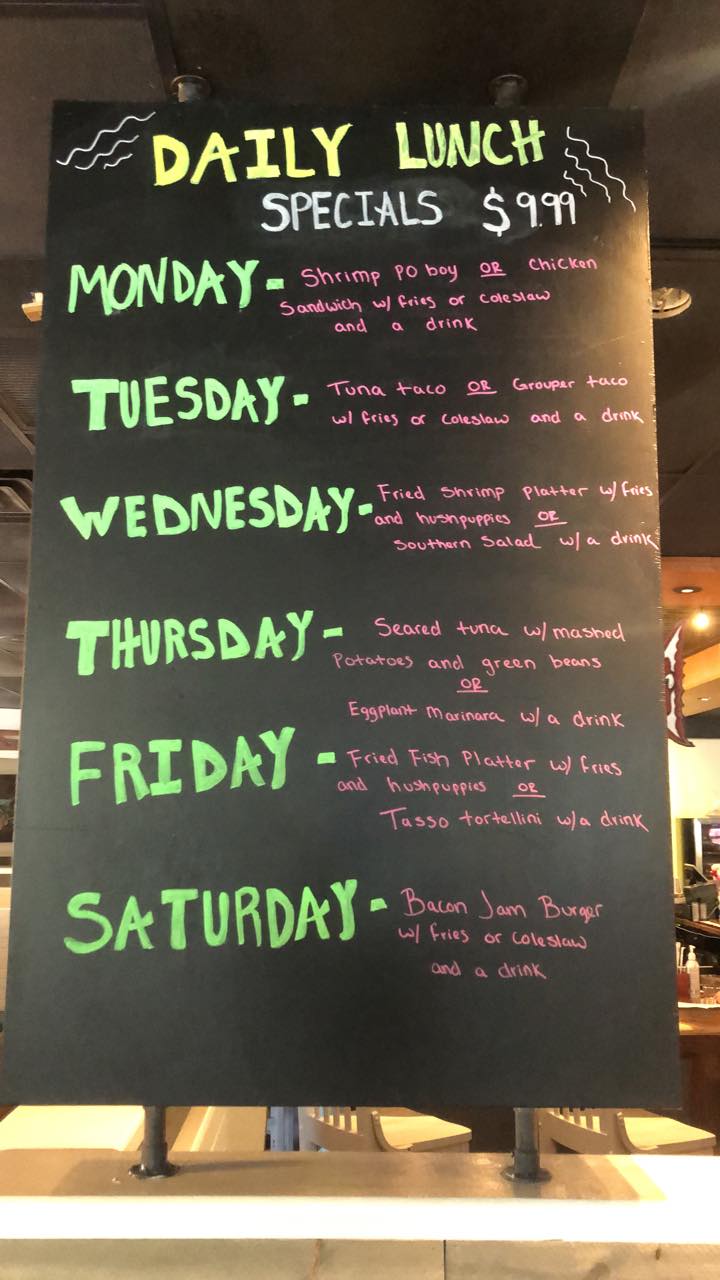 DAILY LUNCH
SPECIALS $9.99
MONDAY - Shrimp Po boy OR Chicken
Sandwich w/ fries or coleslaw
and a drink
TUESDAY - Tuna taco OR Grouper taco
w/ fries or coleslaw and a drink
WEDNESDAY - Fried Shrimp Platter w/ fries
and hushpuppies OR
Southern Salad w/ a drink
THURSDAY - Seared tuna w/ mashed
Potatoes and green beans
OR
Eggplant Marinara w/ a drink
FRIDAY - Fried Fish Platter w/ fries
and hushpuppies OR
Tasso tortellini w/ a drink
SATURDAY - Bacon Jam Burger
w/ fries or coleslaw
and a drink